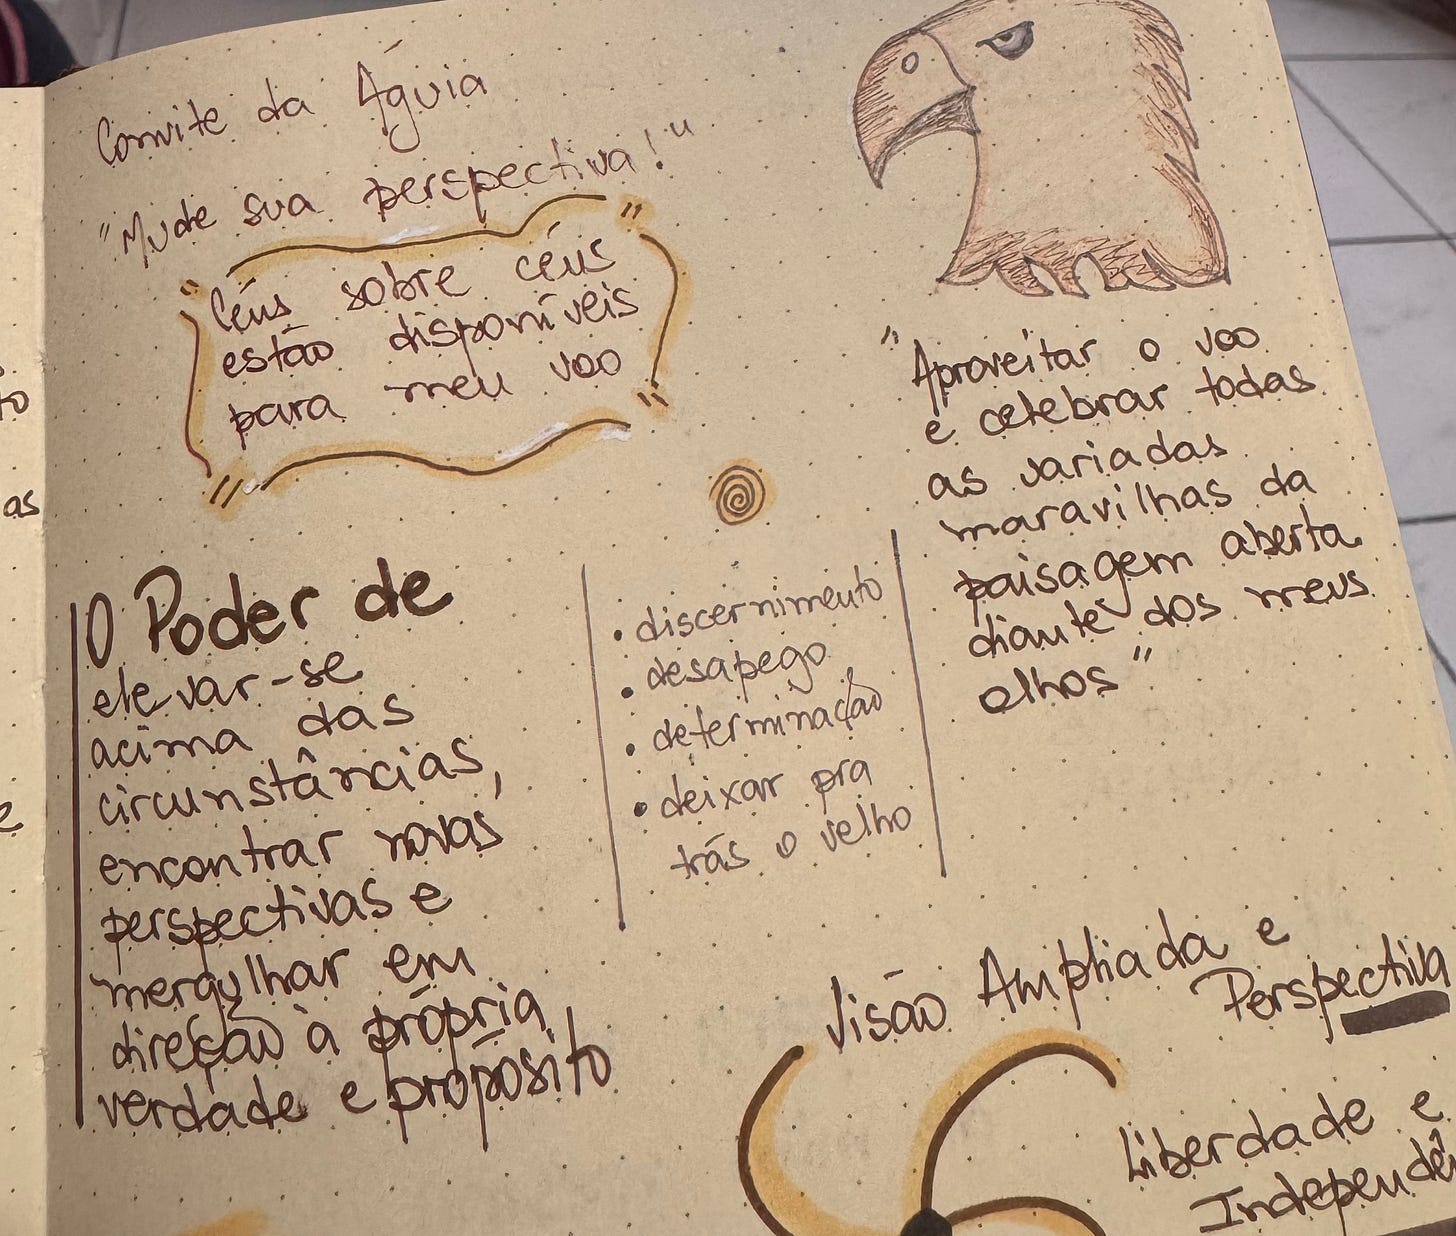 Convite da Águia
"Mude sua perspectiva!"
"Céus sobre céus
estão disponíveis
para meu voo
"Aproveitar o voo
e celebrar todas
as variadas
maravilhas da
paisagem aberta
diante dos meus
olhos"
O Poder de
elevar-se
acima das
circunstâncias,
encontrar novas
perspectivas e
mergulhar em
direção à própria
verdade e propósito
• discernimento
• desapego
• determinação
• deixar pra
trás o velho
Visão Ampliada e
Perspectiva
Liberdade e
as
e